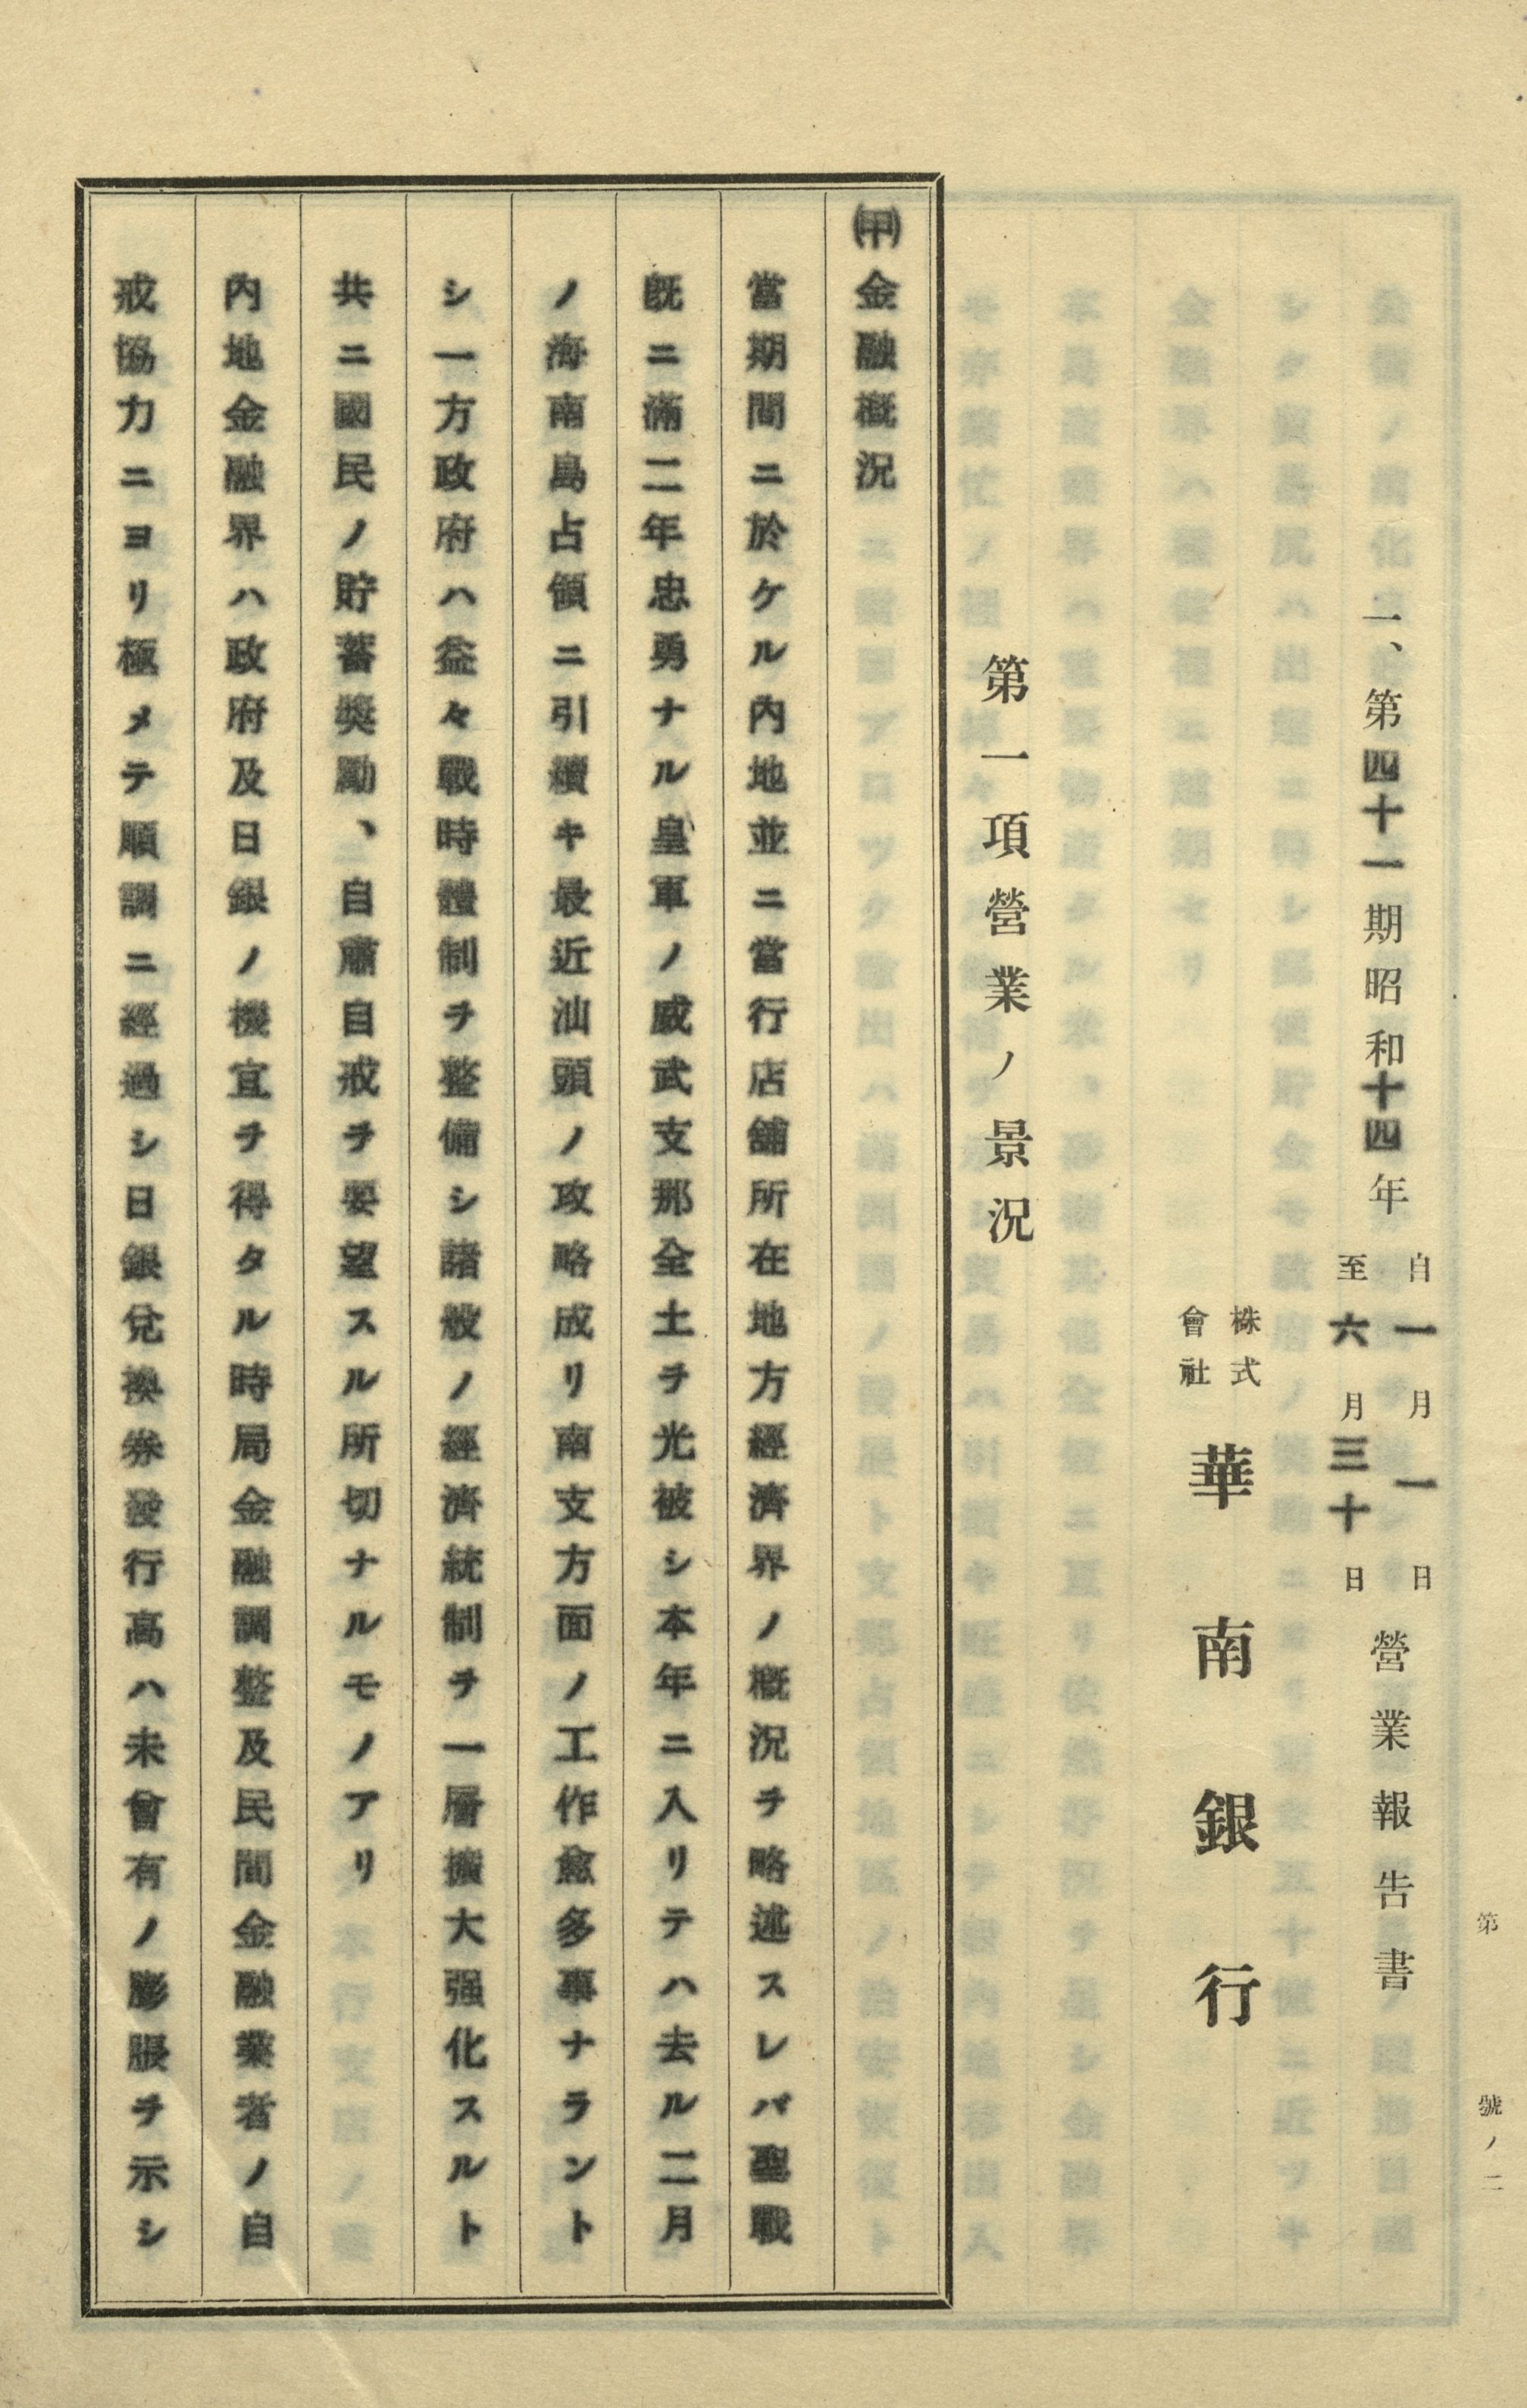 第　　號ノ二
一、第四十一期昭和十四年自一月一日至六月三十日營業報告書
株式會社華南銀行
第一項營業ノ景況
㈙金融概況
當期間ニ於ケル內地並ニ當行店舖所在地方經濟界ノ概況ヲ略述スレバ聖戰
旣ニ滿二年忠勇ナル皇軍ノ威武支那全土ヲ光被シ本年ニ入リテハ去ル二月
ノ海南島占領ニ引續キ最近汕頭ノ攻略成リ南支方面ノ工作愈多事ナラント
シ一方政府ハ益々戰時體制ヲ整備シ諸般ノ經濟統制ヲ一層擴大强化スルト
共ニ國民ノ貯蓄奬勵、自肅自戒ヲ要望スル所切ナルモノアリ
內地金融界ハ政府及日銀ノ機宜ヲ得タル時局金融調整及民間金融業者ノ自
戒協力ニヨリ極メテ順調ニ經過シ日銀兌換券發行高ハ未曾有ノ膨脹ヲ示シ